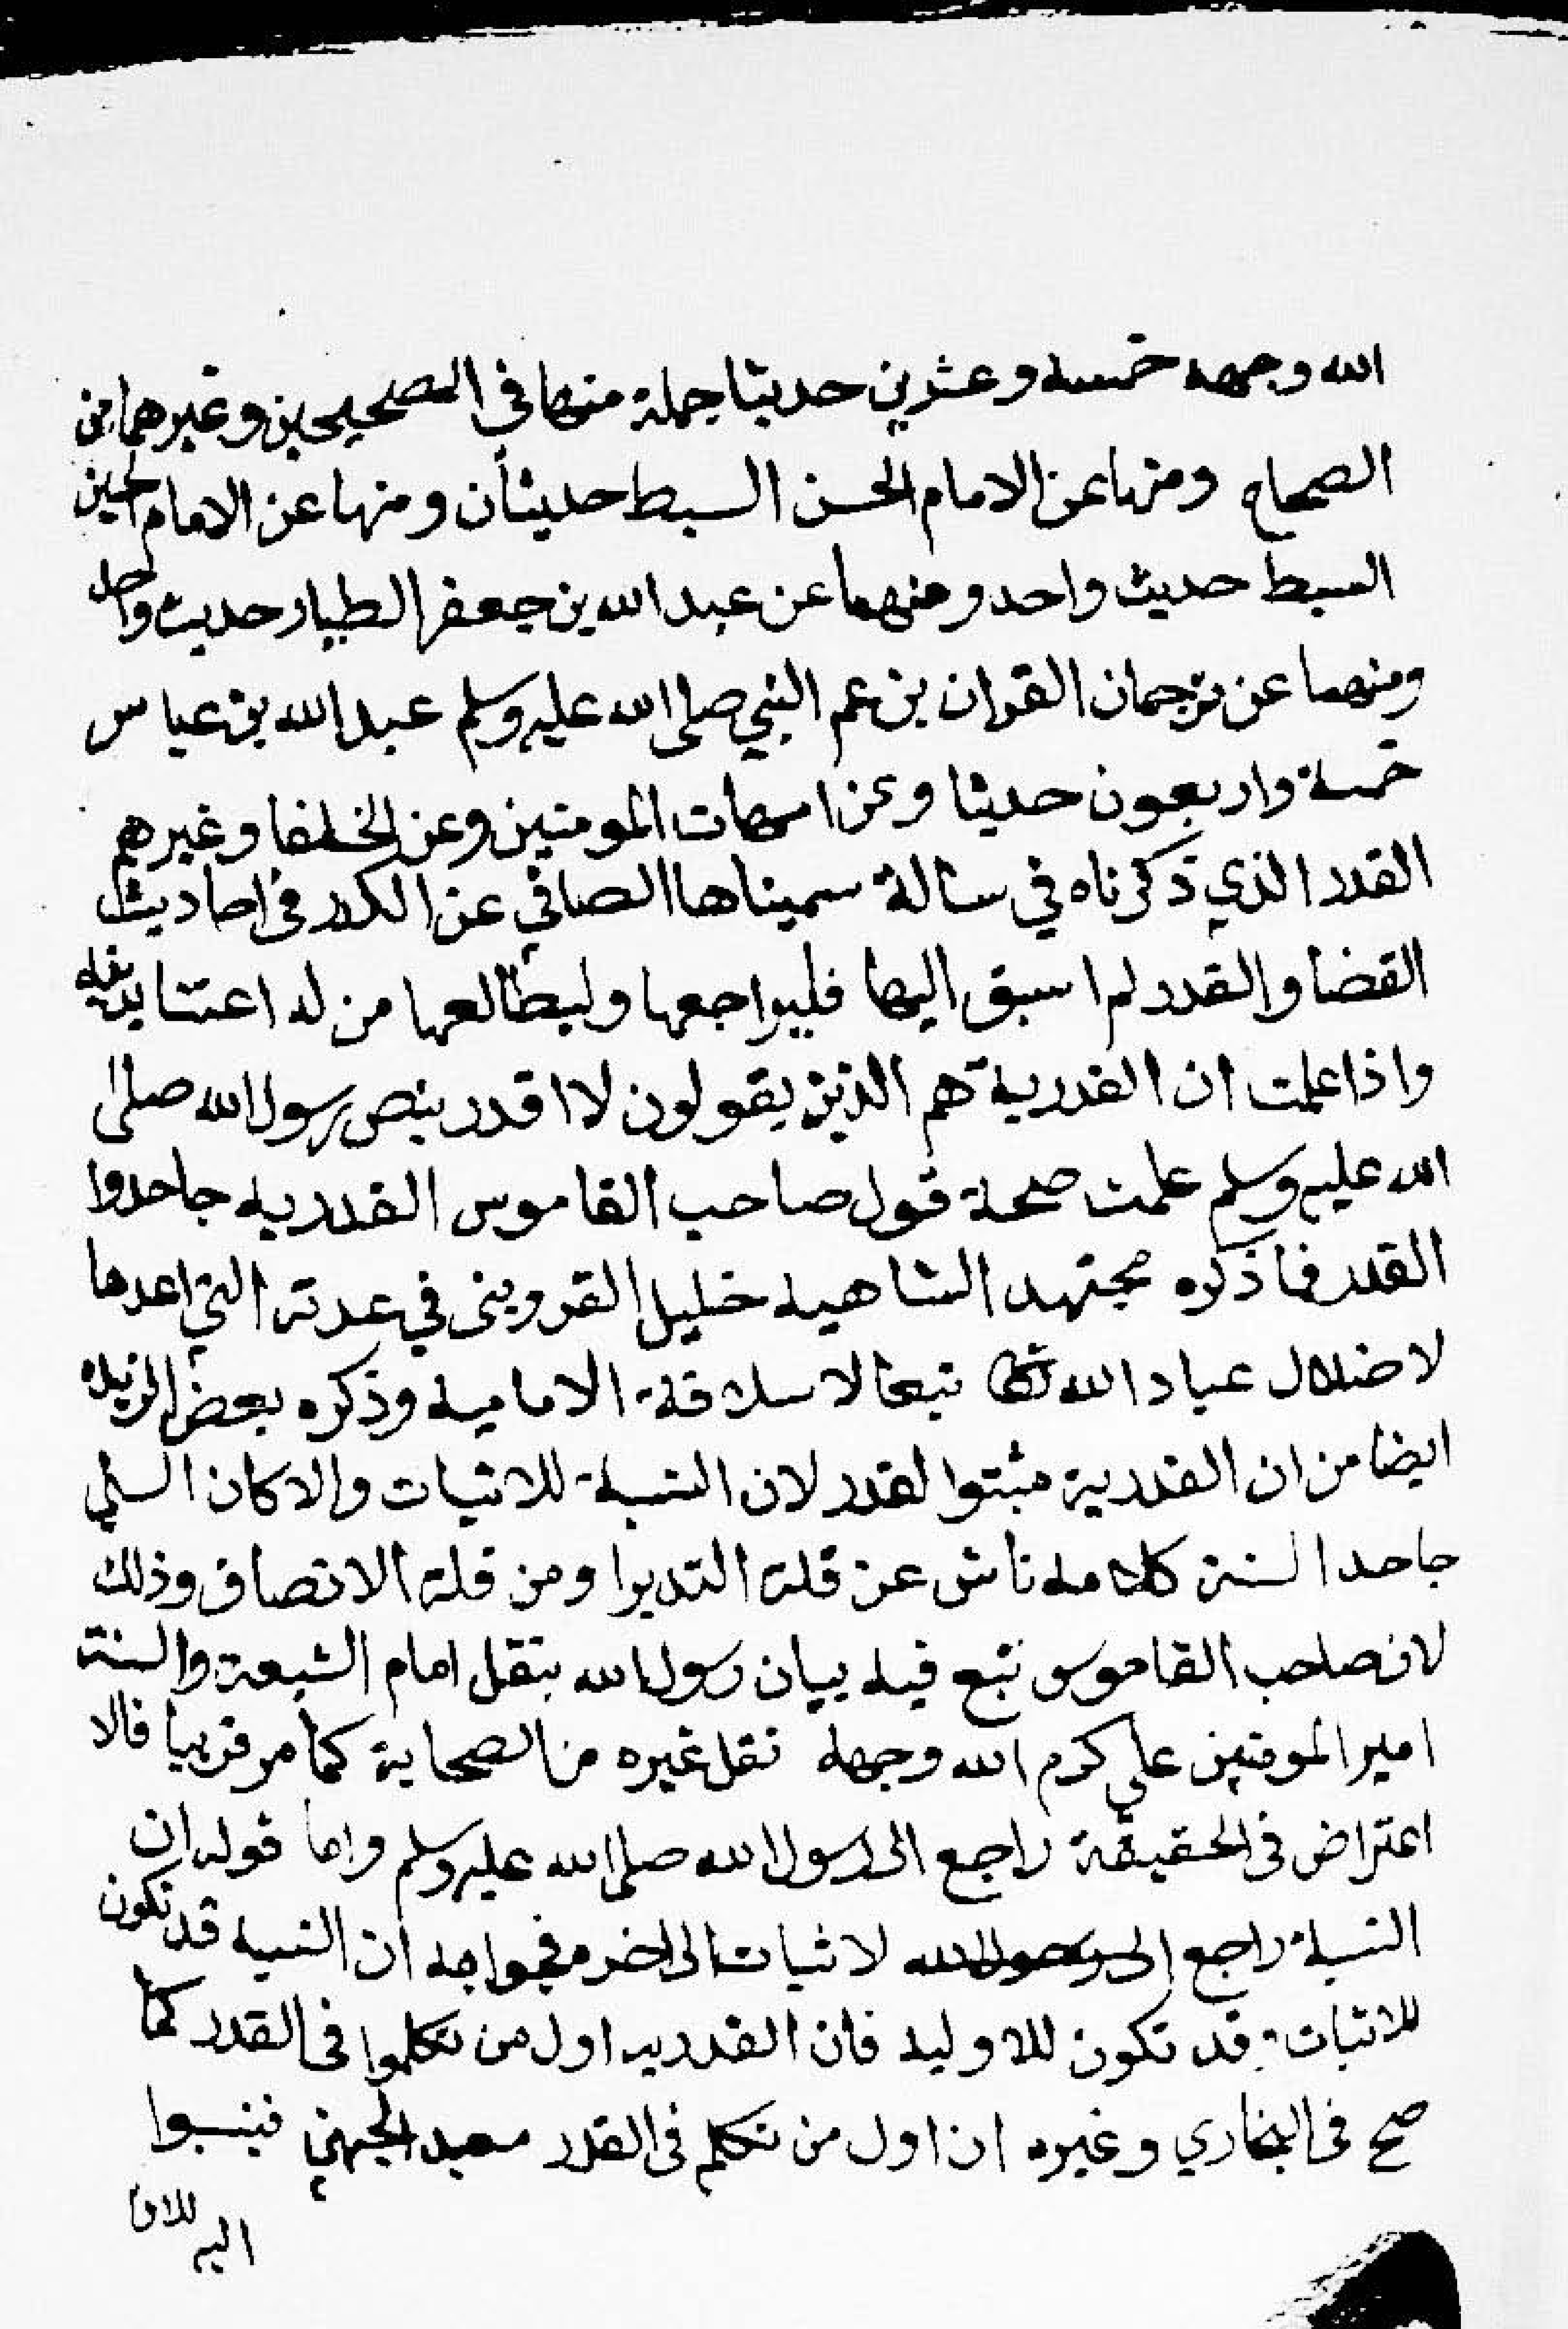 الله وجهه خمسه وعشرين حديثا جملة منها في الصحيحين وغيرهما من
الصحاح ومنها عن الامام الحسن السبط حديثان ومنها عن الامام الحسين
السبط حديث واحد ومنهما عن عبد الله بن جعفر الطيار حديث واحد
ومنهما عن ترجمان القران بن عم النبي صلى الله عليه وسلم عبد الله بن عباس
خمسة واربعون حديثا وعن امهات المومنين وعن الخلفا وغيرهم
القدر الذي ذكرناه في سالة سميناها الصافي عن الكدر في احاديث
القضا والقدر لم اسبق اليها فليراجعها وليطالعها من له اعتنا بدينه
واذا علمت ان القدرية هم الذين يقولون لا قدر بنص رسول الله صلى
الله عليه وسلم علمت صحة قول صاحب القاموس القدريه جاحدوا
القدر فما ذكره مجتهد الشاهيه خليل القزويني في عدته التي اعدها
لاضلال عباد الله تعالى تبعا لاسلافه الاماميه وذكره بعض الزيديه
ايضا من ان القدرية مثبتوا لقدر لان النسبة للاثبات والا كان السني
جاحد السنة كلامه ناش عن قلة التدبرا ومن قلة الانصاف وذلك
لان صاحب القاموس تبع فيه بيان رسول الله بنقل امام الشيعة والسنة
امير المومنين علي كرم الله وجهه نقل غيره من الصحابة كما مر قريبا فالا
اعتراض في الحقيقة راجع الى رسول الله صلى الله عليه وسلم واما قوله ان
النسبة راجع الى رسول الله لاثبات الى اخره فجوابه ان النسبه قد تكون
للاثبات قد تكون للاوليه فان القدريه اول من تكلموا في القدر كما
صح في البخاري وغيره ان اول من تكلم في القدر معبد الجهني فينسبوا
اليه